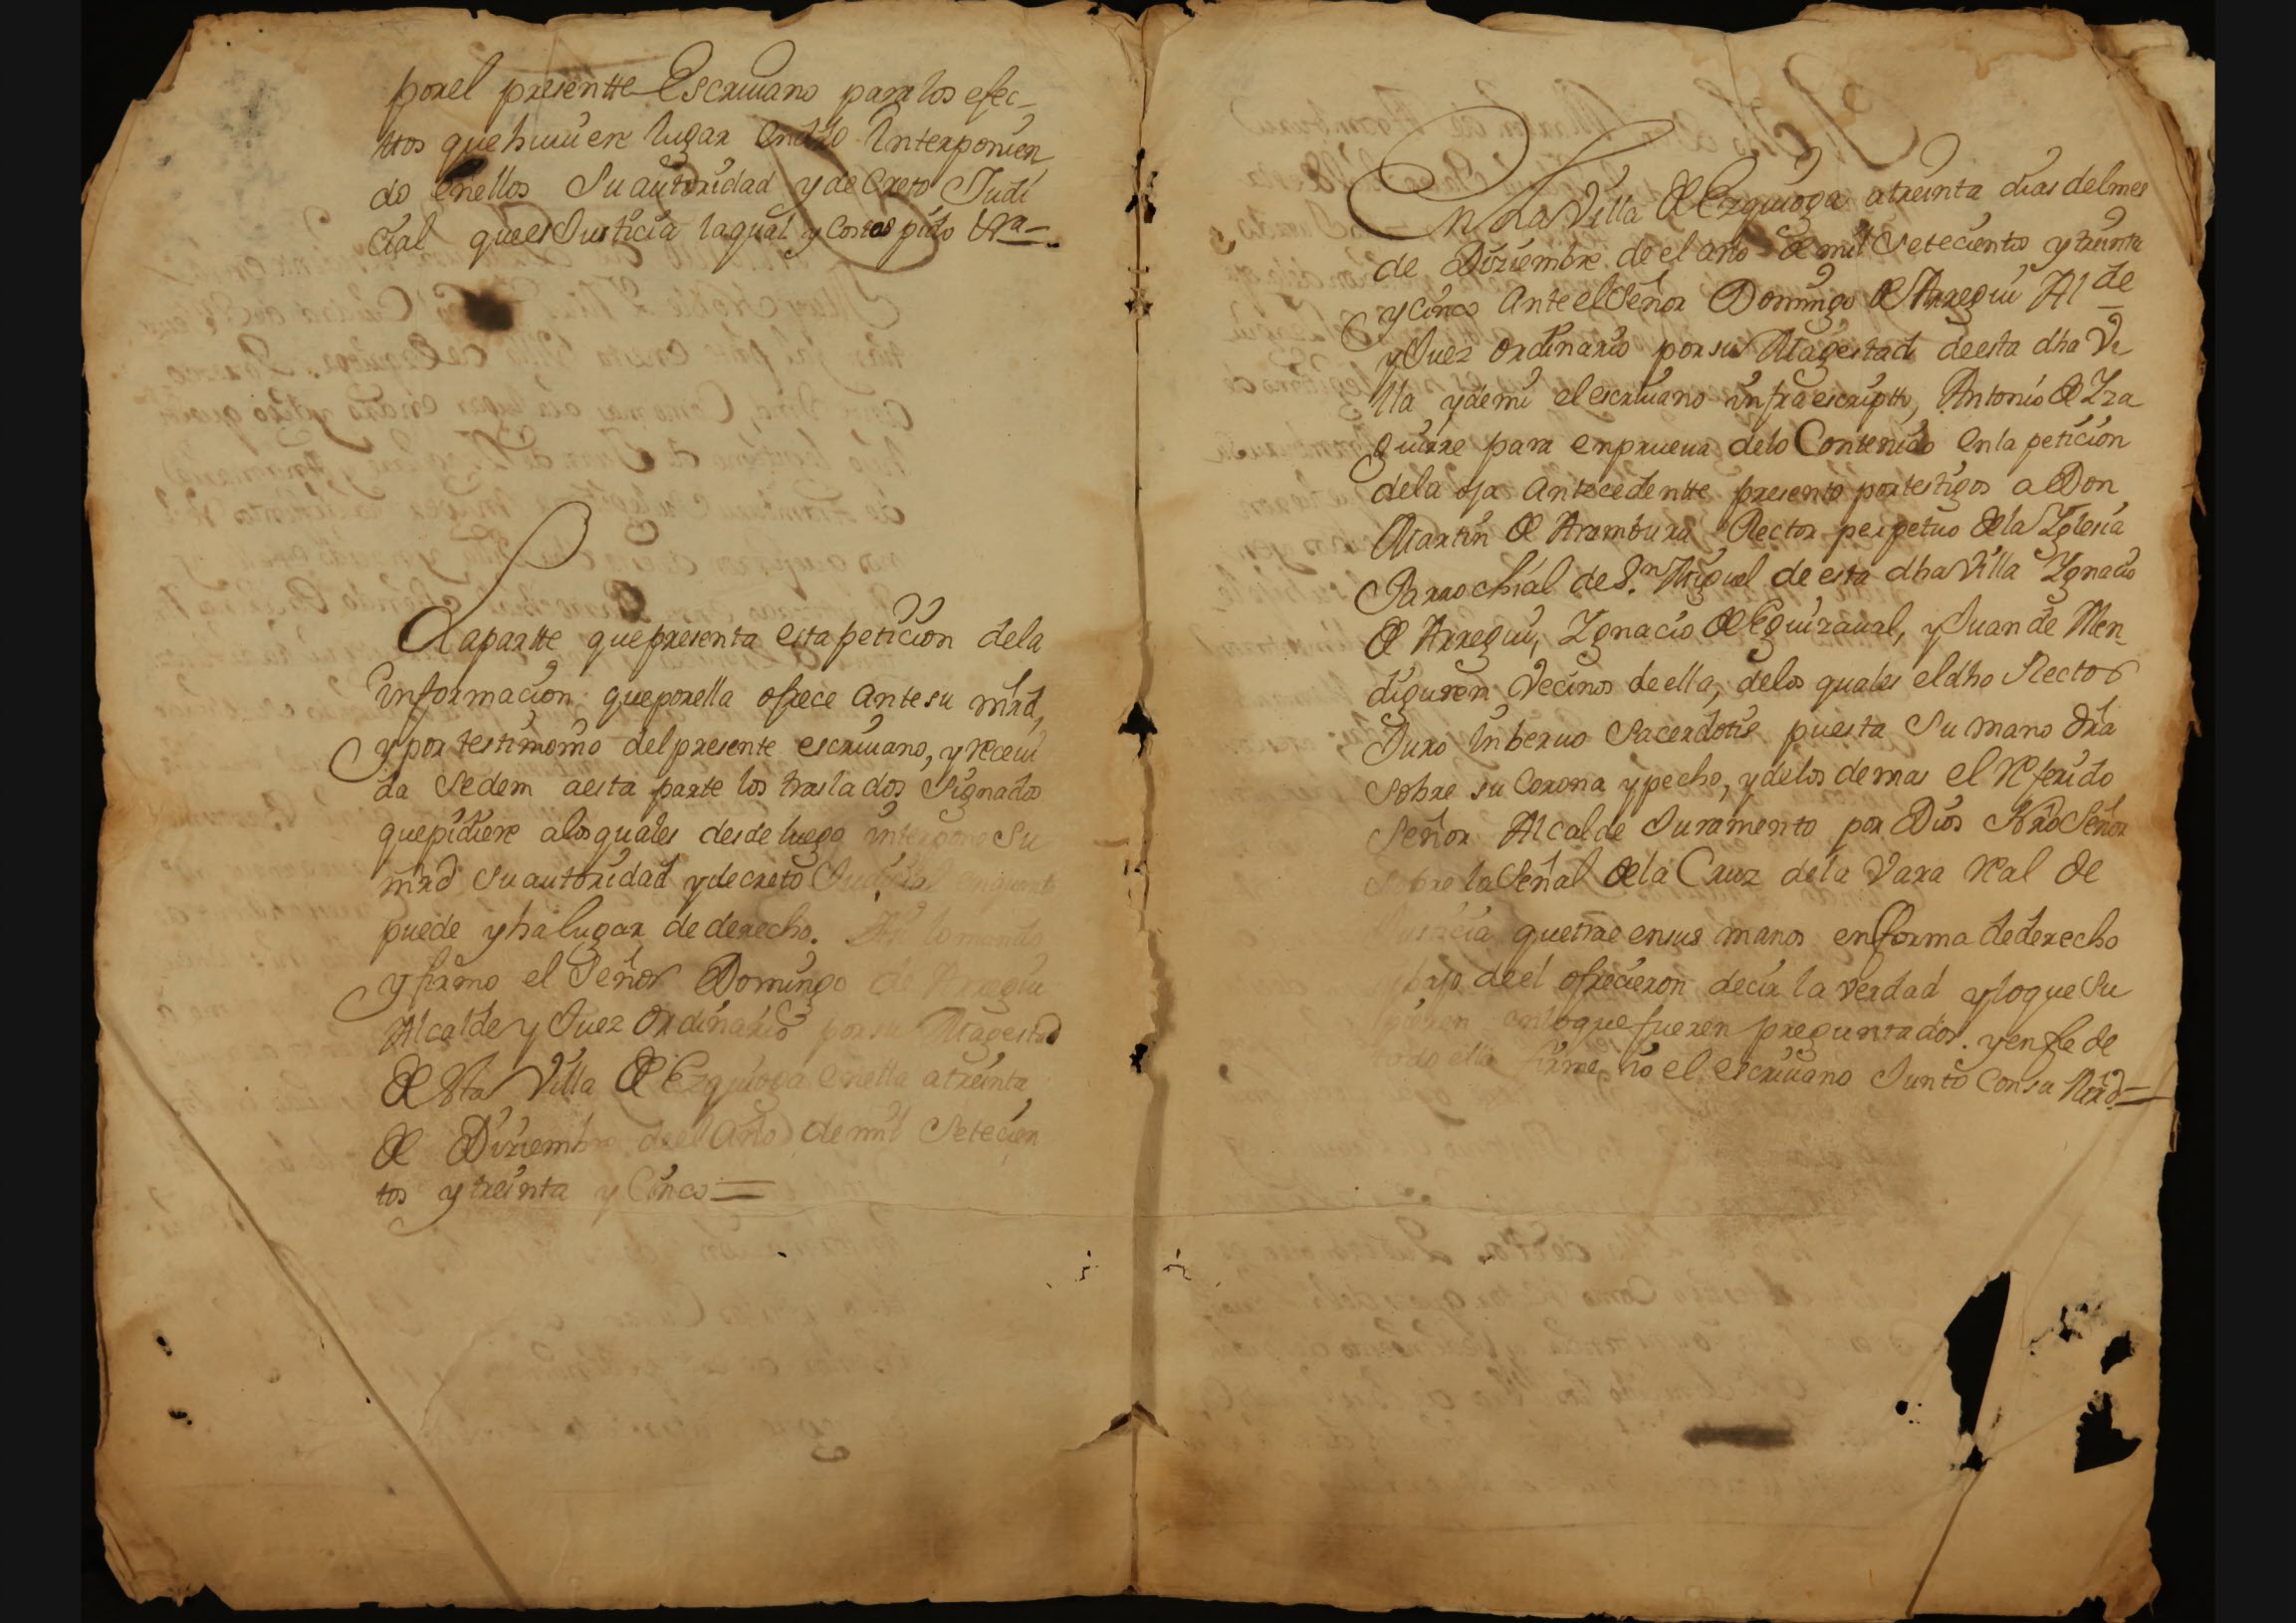 por el presentte Escriuano para los efec-
ttos que huuiere lugar en dro Interponien
do en ellos Su autoridad y de Creto Judi
cial que es Justicia la qual y Costas pido Vra-
La partte que presenta esta peticion de la
informacion que por ella ofrece ante su mrd,
y por testimonio del presente escriuano, y receui
da Se dem a esta parte los traslados Signados
que pidiere a los quales desde luego interpone Su
mrd su autoridad y decreto Judicial en quanto
puede y ha lugar de derecho. Assi lo mando
y firmo el Señor Domingo de Arregui
Alcalde y Juez Ordinario por su Magestad
de Esta Villa de Ezquioga en ella a treinta
de Diziembre de el Año de mil Setecien
tos y treinta y Cinco =
En La Villa de Ezquioga a treinta dias del mes
de Diziembre de el año de mil Setecientos y treinta
y cinco Ante el Señor Domingo de Arregui Alde
y Juez ordinario por su Magestad de esta dha Vi
lla y de mi el escriuano infraescriptto, Antonio de Iza
guirre para en prueua de lo Contenido en la peticion
de la oja Antecedentte presento por testigos a Don
Martin de Aramburu Rector perpetuo de la Iglesia
Parrochial de Sn. Miguel de esta dha Villa Ignacio
de Arregui, Ignacio de Eguizaual, y Juan de Men-
diguren Vecinos de ella, de los quales el dho Rector
Juro in beruo Sacerdotis puesta Su mano dra
Sobre su Corona y pecho, y de los demas el referido
Señor Alcalde Juramento por Dios Nro Señor
Sobre la Señal de la Cruz de la Vara real de
Justicia que trae en sus manos en forma de derecho
y bajo de el ofrecieron decir la verdad y lo que Su
pieren en lo que fueren preguntados. y en fe de
todo ello firme Yo el escriuano Junto Con su Mrd =